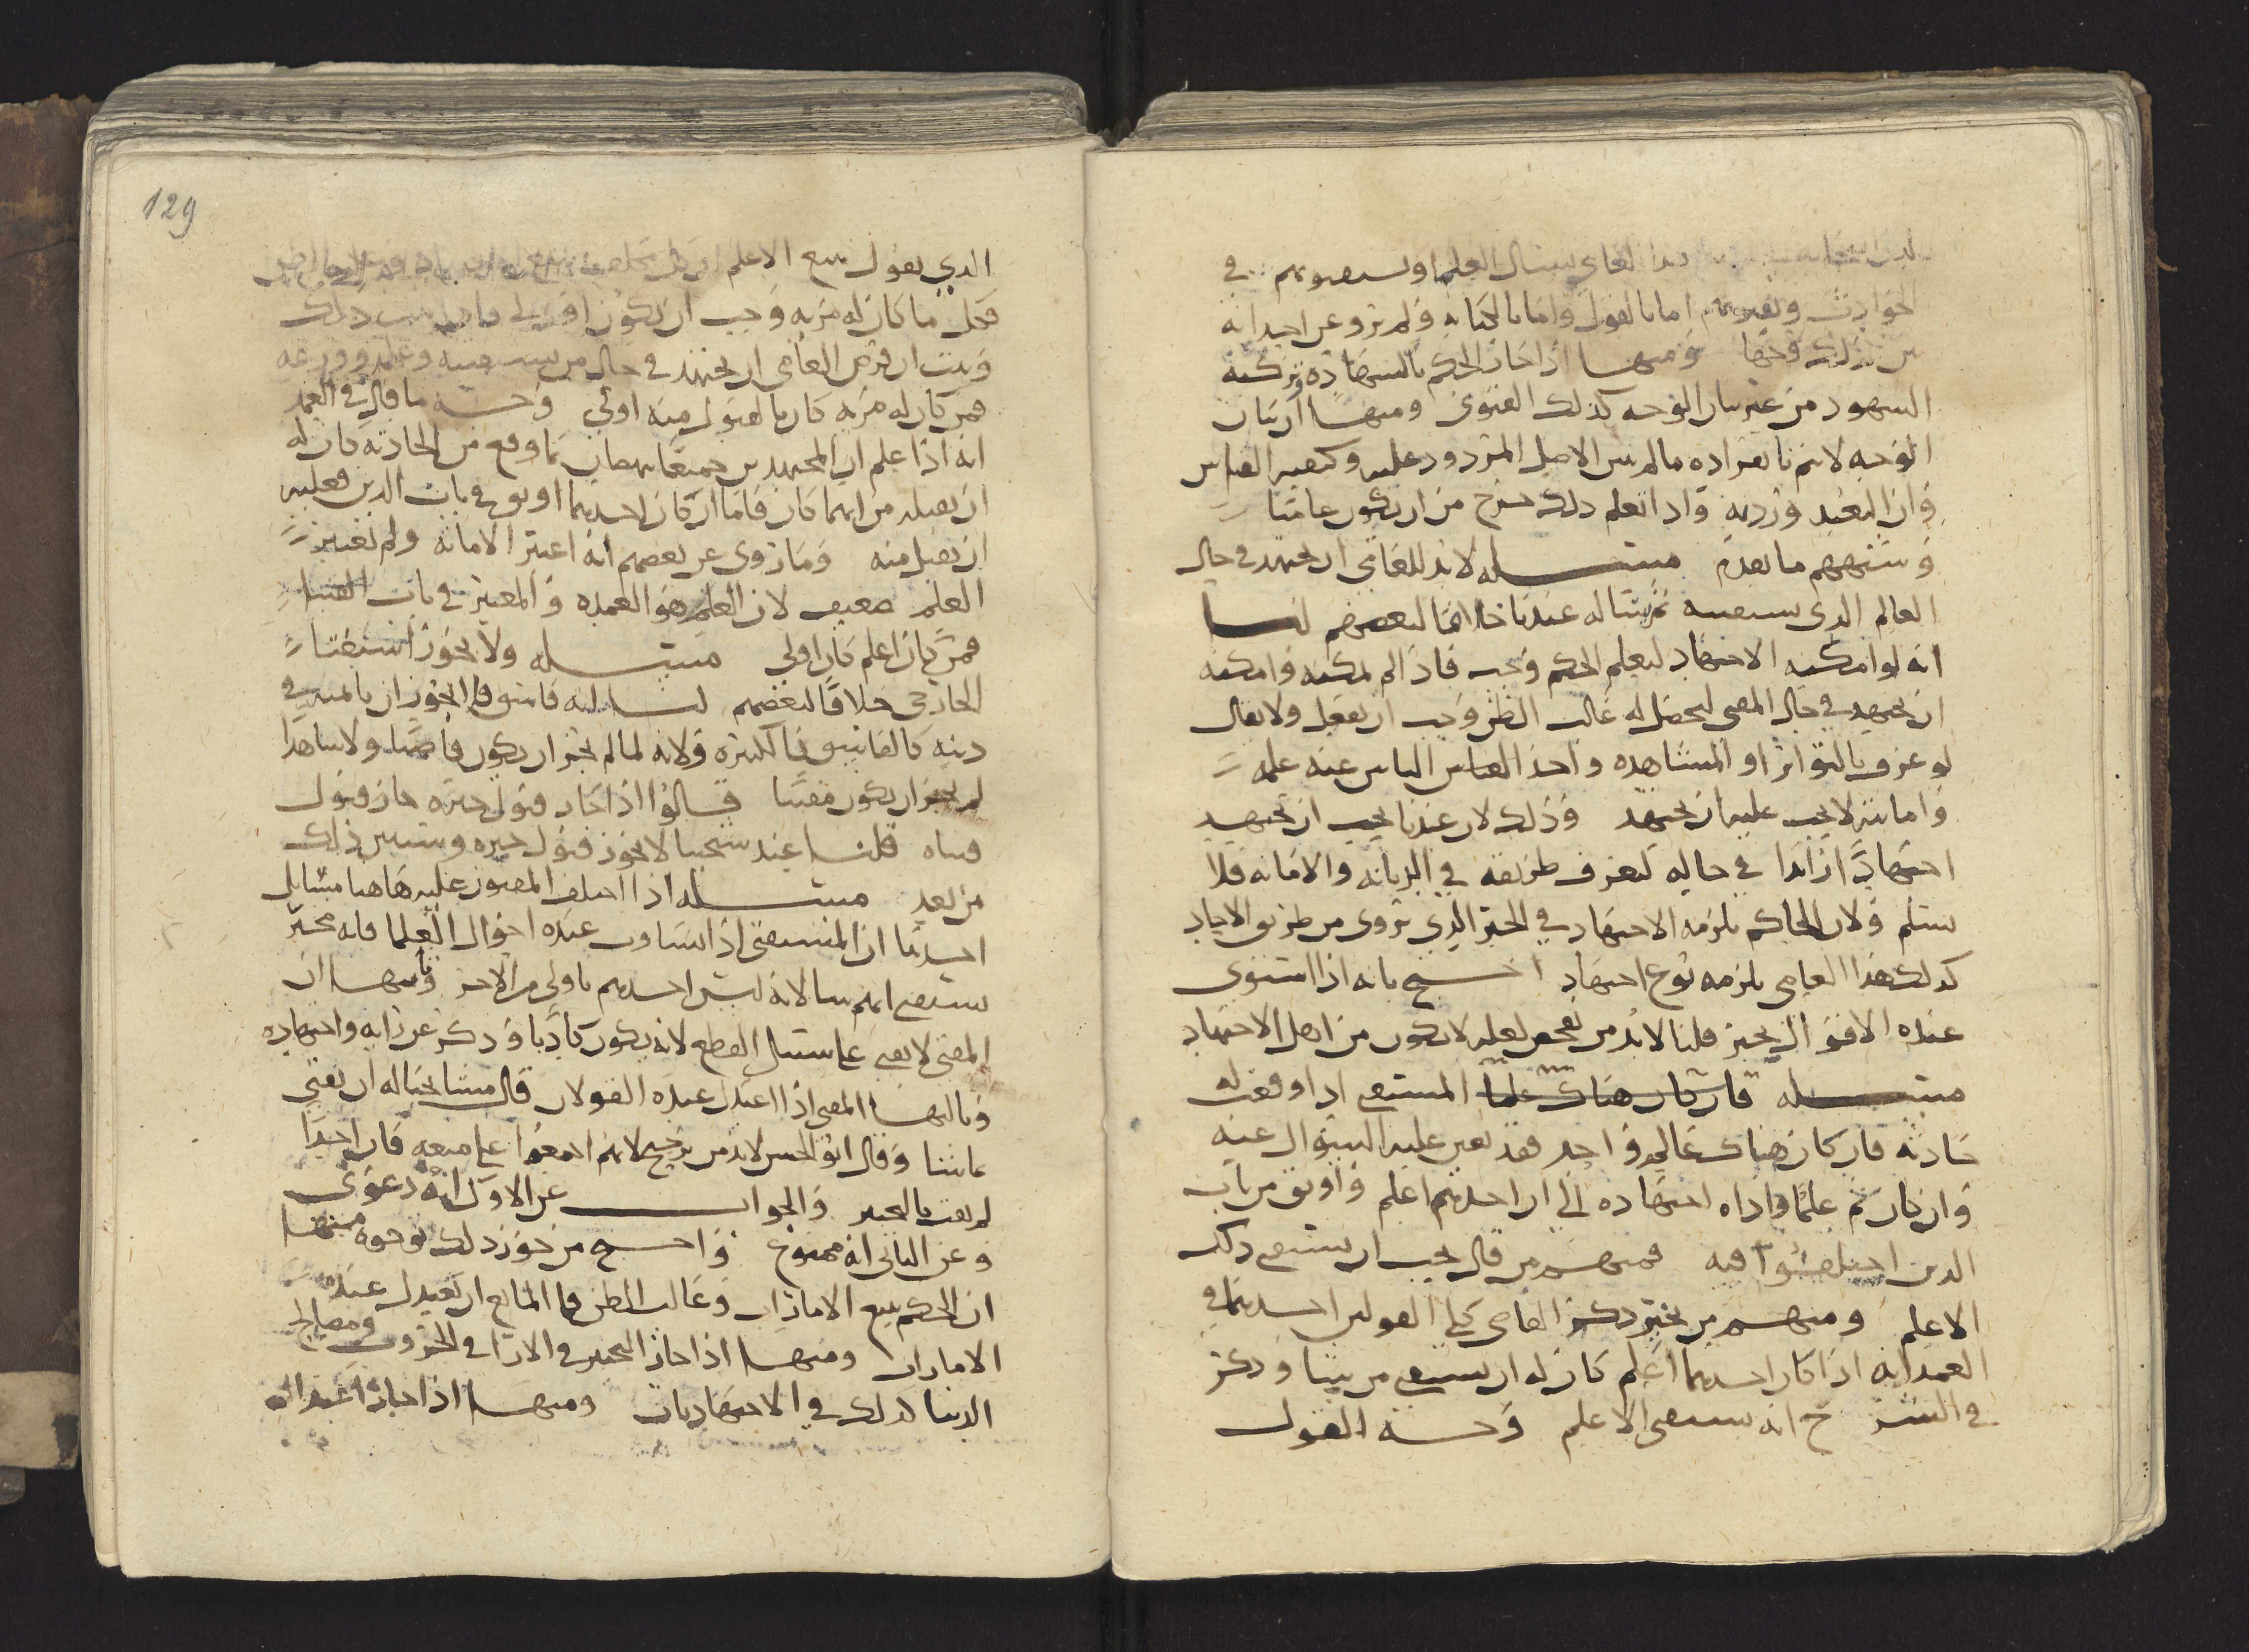 العامي يسال العلما ويستفتونهم في
الحوادث ويفتونهم اما بالقول واما بالكتابه ولم يرو عن احد انه
بين ذلك وجها ومنها اذا جاز الحكم بالشهادة وتزكيه
الشهود من غير بيان الوجه كذلك الفتوى ومنها ان بيان
الوجه لا يتم بانفراده ما لم يبين الاصل المردود عليه وكيفيه القياس
وان البعيد ورد به واذا تعلم ذلك خرج من ان يكون عاميا
وشبههم ما تقدم مسله لا بد للعامي ان يجتهد في حال
العالم الذي يستفتيه ثم يساله عندنا خلافا لبعضهم لنا
انه لو امكنه الاجتهاد ليعلم الحكم وجب فاذا لم يمكنه وامكنه
ان يجتهد في حال المفتي ليحصل له غالب الظن وجب ان يفعل ولا يقال
لو عرف بالتواتر او المشاهده واخذ الناس عنه علمه
وامانته لا يجب عليه ان يجتهد وذلك لان عندنا يجب ان يجتهد
اجتهادا زايدا في حاله ليعرف طريقه في الديانه والامانه فلا
يسلم ولان الحاكم يلزمه الاجتهاد في الخبر الذي يروى من طريق الاحاد
كذلك هذا العامي يلزمه نوع اجتهاد احتج بانه اذا استوى
عنده الاقوال يخير قلنا لا بد من تفحص لعله لا يكون من اهل الاجتهاد
مسله فان كان هناك علما المستفتي اذا وقعت له
حادثه فان كان هناك عالم واحد فقد تعين عليه السوال عنه
وان كان ثم علما واداه اجتهاده الى ان احدهم اعلم واوثق من باب
الدين اختلفوا فيه فمنهم من قال يجب ان يستفتي ذلك
الاعلم ومنهم من يخير ذكر القاضي كلى القولين احدهما في
العمد انه اذا كان احدهما اعلم كان له ان يستفتي من يشا وذكر
في الشرح انه يستفتي الاعلم وجه القول
129
الذي يقول يتبع الاعلم
فكل ما كان له مزيه وجب ان يكون ذلك
وثبت ان فرض العامي ان يجتهد في حال من يستفتيه وعلمه وورعه
فمن كان له مزيه كان بالقبول منه اولى وجه ما قال في العمد
انه اذا علم ان المجتهدين جميعا ما وقع من الحادثه فان له
ان يقبله من ايهما كان فاما ان كان احدهما اوثق في باب الدين فعليه
ان يقبل منه وما روي عن بعضهم انه اعتبر الامانه ولم يعتبر
العلم ضعيف لان العلم هو العمده والمعتبر في باب الفتيا
فمن كان اعلم كان اولى مسله ولا يجوز استفتا
الخارجي خلافا لبعضهم لنا انه فاسق
دينه كالفاسق ولانه لما لم يجز ان يكون قاضيا ولا شاهدا
لم يجز ان يكون مفتيا قالوا اذا جاز قبول خبره جاز قبول
فتياه قلنا عند شيخنا لا يجوز قبول خبره وسنبين ذلك
من بعد مسله اذا اختلف المفتون عليه هاهنا مسايل
احدها ان المستفتي اذا تساوت عنده احوال العلما فانه مخير
يستفتي ايهم شا لانه ليس احدهم باولى من الاخر وثانيها ان
المفتي لا يفتي على سبيل القطع لانه يكون كاذبا وذكر عن رايه واجتهاده
وثالثها المفتي اذا اعتدل عنده القولان قال مشايخنا له ان يفتي
بايهما شا وقال ابو الحسن لا بد من ترجيح لانهم اجمعوا على منعه فان احدا
لم يفت بالتخيير والجواب عن الاول انه دعوى
وعن الثاني انه ممنوع واحتج من جوز ذلك بوجوه منها
ان الحكم يتبع الامارات وغالب الظن فما المانع ان يعتدل عنده
الامارات ومنها اذا جاز التخيير في الارا في الحروب ومصالح
الدنيا كذلك في الاجتهاديات ومنها اذا جاز اعتدال